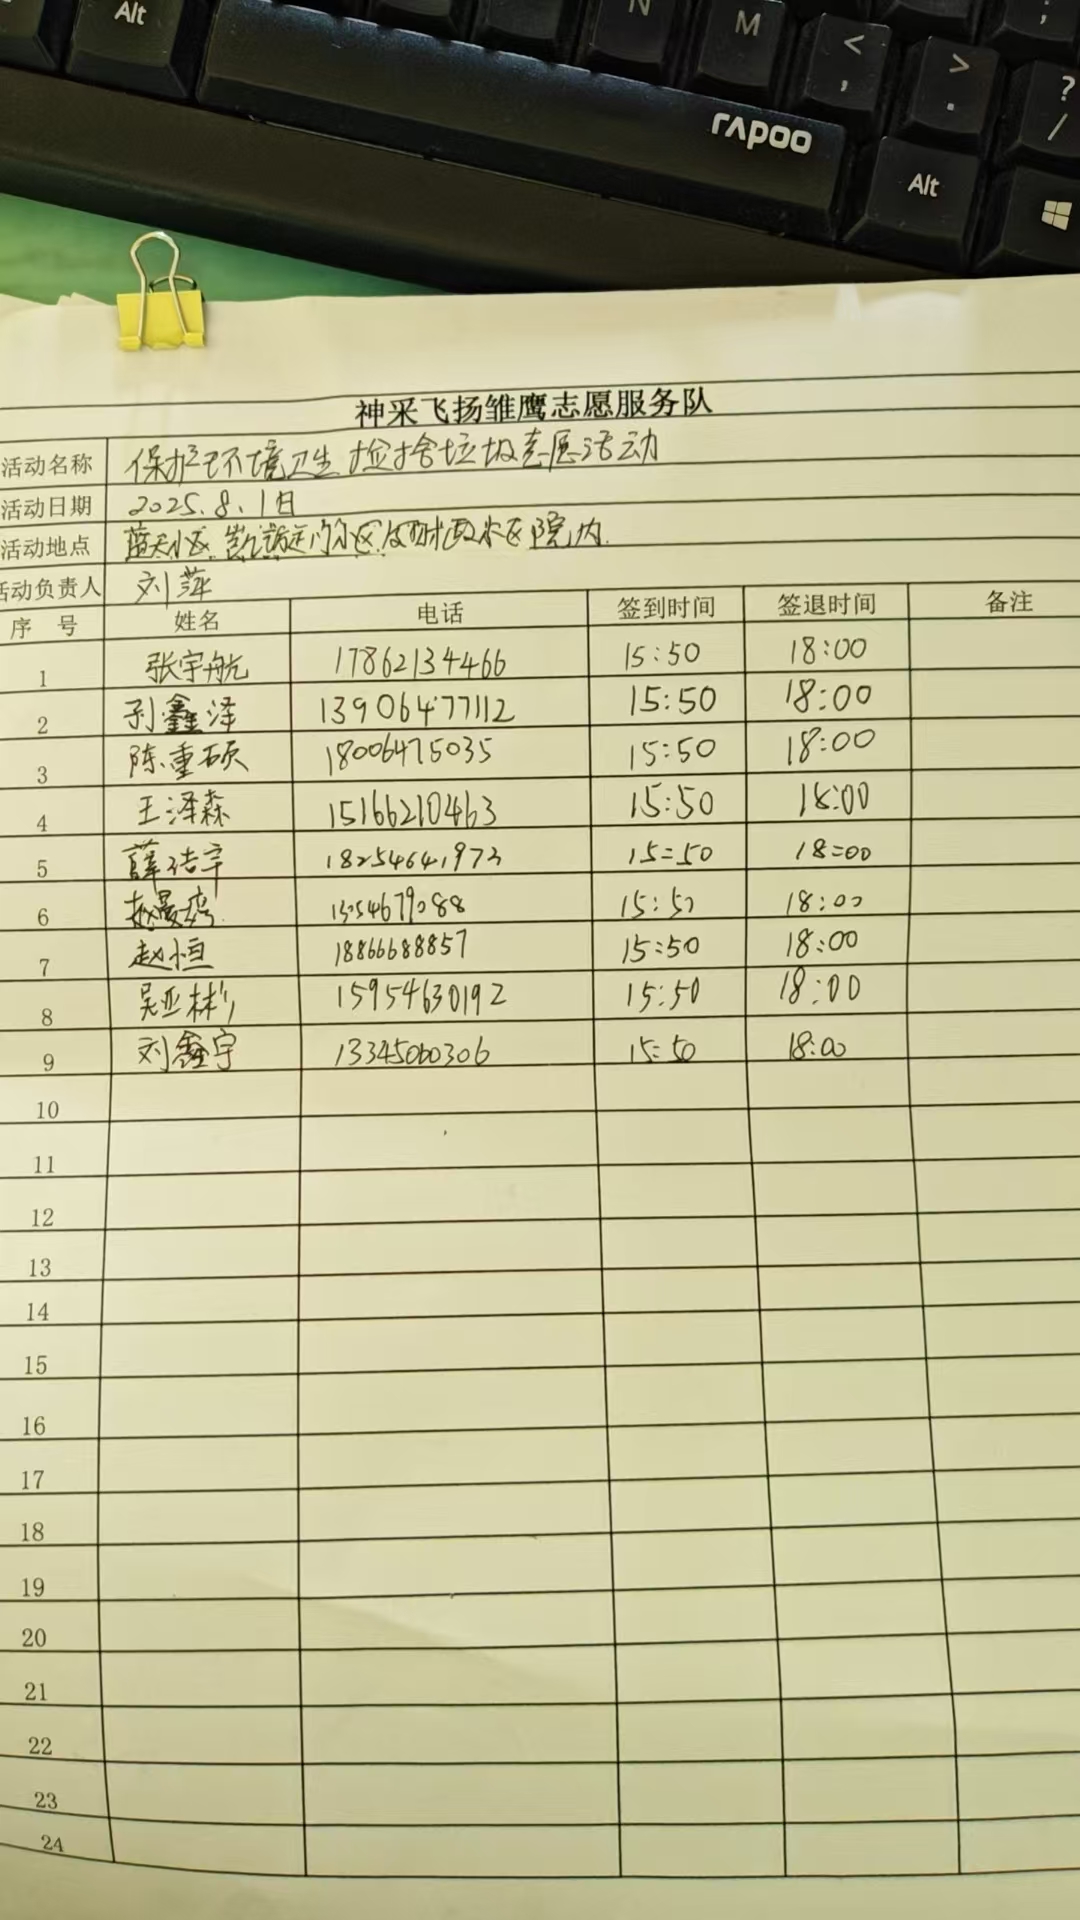 Alt
N
M
<
,
>
.
;
?
/
rapoo
Alt
神采飞扬雏鹰志愿服务队
活动名称 保护环境卫生捡拾垃圾志愿活动
活动日期 2025.8.1日
活动地点 蓝天小区、凯 小区及 小区院内.
活动负责人 刘萍
序 号 姓名 电话 签到时间 签退时间 备注
1 张宇航 17862134466 15:50 18:00
2 孙鑫泽 13906477112 15:50 18:00
3 陈重硕 18006475035 15:50 18:00
4 王泽森 15166210463 15:50 18:00
5 薛洁宇 18254641973 15:50 18:00
6 赵 13054679088 15:50 18:00
7 赵恒 18866688857 15:50 18:00
8 吴亚彬 15954630192 15:50 18:00
9 刘鑫宇 13345060306 15:50 18:00
10
11
12
13
14
15
16
17
18
19
20
21
22
23
24